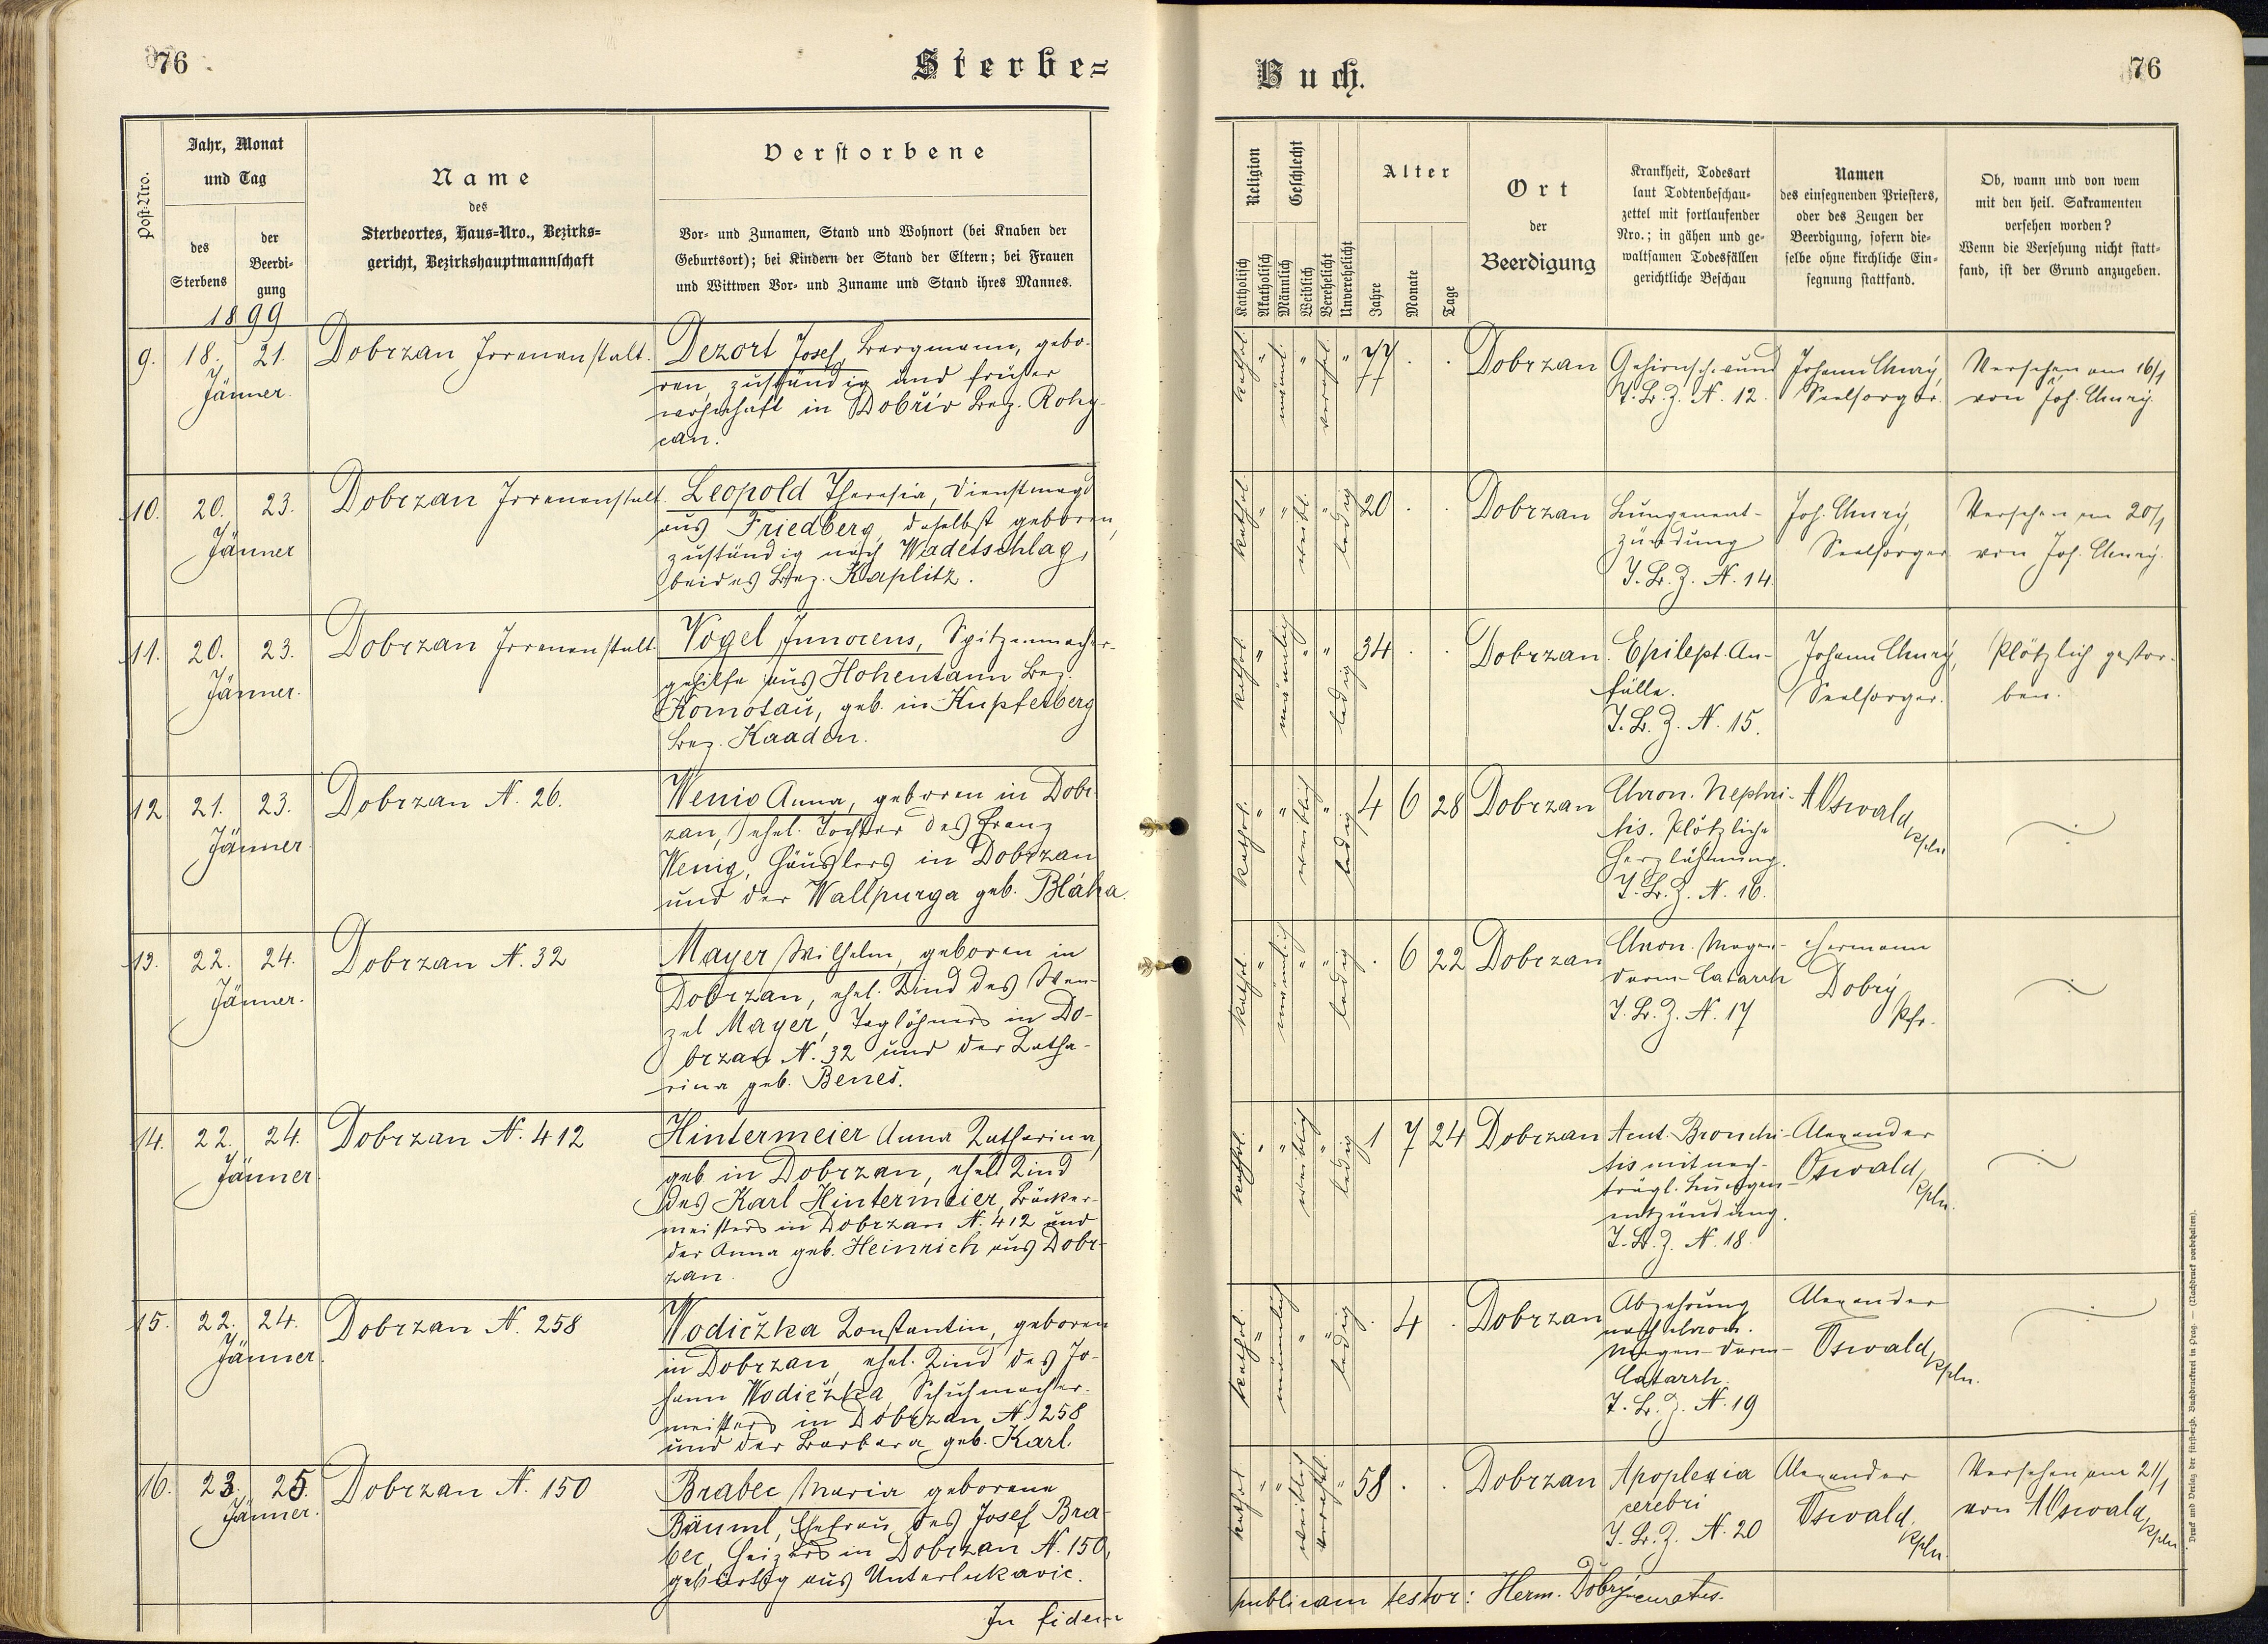 76
Sterbe=
Post-Nro.
Jahr, Monat
und Tag
des
Sterbens
der
Beerdi-
gung
1899
Name
des
Sterbeortes, Haus-Nro., Bezirks-
gericht, Bezirkshauptmannschaft
Verstorbene
Vor- und Zunamen, Stand und Wohnort (bei Knaben der
Geburtsort); bei Kindern der Stand der Eltern; bei Frauen
und Wittwen Vor- und Zuname und Stand ihres Mannes.
9. 18. 21. Dobrzan Irrenanstalt. Dezort Josef, Bergmann, gebo-
Jänner. ren, zuständig und früher
wohnhaft in Dobřiv Bez. Roky-
can.
10. 20. 23. Dobrzan Irrenanstalt. Leopold Theresia, Dienstmagd
Jänner aus Friedberg, daselbst geboren,
zuständig nach Wadetschlag,
beides Bez. Kaplitz.
11. 20. 23. Dobrzan Irrenanstalt. Vogel Innocens, Spitzenmacher-
Jänner. gehilfe aus Hohentann Bez.
Komotau, geb. in Kupferberg
Bez. Kaaden.
12. 21. 23. Dobrzan N. 26. Wenig Anna, geboren in Dobr-
Jänner zan, ehel. Tochter des Franz
Wenig, Häuslers in Dobrzan
und der Wallpurga geb. Bláha.
13. 22. 24. Dobrzan N. 32 Mayer Wilhelm, geboren in
Jänner. Dobrzan, ehel. Kind des Wen-
zel Mayer, Taglöhners in Do-
brzan N. 32 und der Katha-
rina geb. Beneš.
14. 22. 24. Dobrzan N. 412 Hintermeier Anna Katharina,
Jänner geb. in Dobrzan, ehel. Kind
des Karl Hintermeier, Bäcker-
meisters in Dobrzan N. 412 und
der Anna geb. Heinrich aus Dobr-
zan.
15. 22. 24. Dobrzan N. 258 Wodiczka Konstantin, geboren
Jänner. in Dobrzan, ehel. Kind des Jo-
hann Wodiczka, Schuhmacher-
meisters in Dobrzan N. 258
und der Barbara geb. Karl.
16. 23. 25. Dobrzan N. 150 Brabec Maria geborene
Jänner. Bäuml, Ehefrau des Josef Bra-
bec, Heizers in Dobrzan N. 150,
gebürtig aus Unterlukavic.
In fidem
Buch.
76
Religion
Katholisch
Akatholisch
Geschlecht
Männlich
Weiblich
Verehelicht
Unverehelicht
Alter
Jahre
Monate
Tage
Ort
der
Beerdigung
Krankheit, Todesart
laut Todtenbeschau-
zettel mit fortlaufender
Nro.; in gähen und ge-
waltsamen Todesfällen
gerichtliche Beschau
Namen
des einsegnenden Priesters,
oder des Zeugen der
Beerdigung, sofern die-
selbe ohne kirchliche Ein-
segnung stattfand.
Ob, wann und von wem
mit den heil. Sakramenten
versehen worden?
Wenn die Versehung nicht statt-
fand, ist der Grund anzugeben.
kathol. " männl. " verehel. " 77 . . Dobrzan Gehirnschwund Johann Versehen am 16/1
T.B.Z. N. 12. Seelsorger. von Joh.
kathol. " " weibl. " ledig 20 . . Dobrzan Lungenent- Joh. Versehen am 20/1
zündung Seelsorger von Joh.
T.B.Z. N. 14
kathol. " männlich " " ledig 34 . . Dobrzan. Epilept. An- Johann Plötzlich gestor-
fälle. Seelsorger. ben.
T.B.Z. N. 15.
kathol. " " weiblich " ledig 4 6 28 Dobrzan Chron. Nephri- A Oswald
tis. Plötzliche Kpln
Herzlähmung.
T.B.Z. N. 16.
kathol. " männlich " " ledig . 6 22 Dobrzan Chron. Magen- Hermann
darm-Catarrh Dobrý
T.B.Z. N. 17 Pfr.
kathol. " " weiblich " ledig 1 7 24 Dobrzan Acut. Bronchi- Alexander
tis mit nach- Oswald,
trägl. Lungen- Kpln.
entzündung.
T.B.Z. N. 18.
kathol. " männlich " " ledig . 4 . Dobrzan Abzehrung Alexander
nach chron. Oswald,
Magen-darm- Kpln.
Catarrh.
T.B.Z. N. 19
kathol " " weiblich verehel. " 58 . . Dobrzan Apoplexia Alexander Versehen am 21/1
cerebri Oswald, von A Oswald,
T.B.Z. N. 20 Kpln. Kpln
publicam testor: Herm. Dobrý curatus.
Druck und Verlag der fürsterzb. Buchdruckerei in Prag. — (Nachdruck vorbehalten).